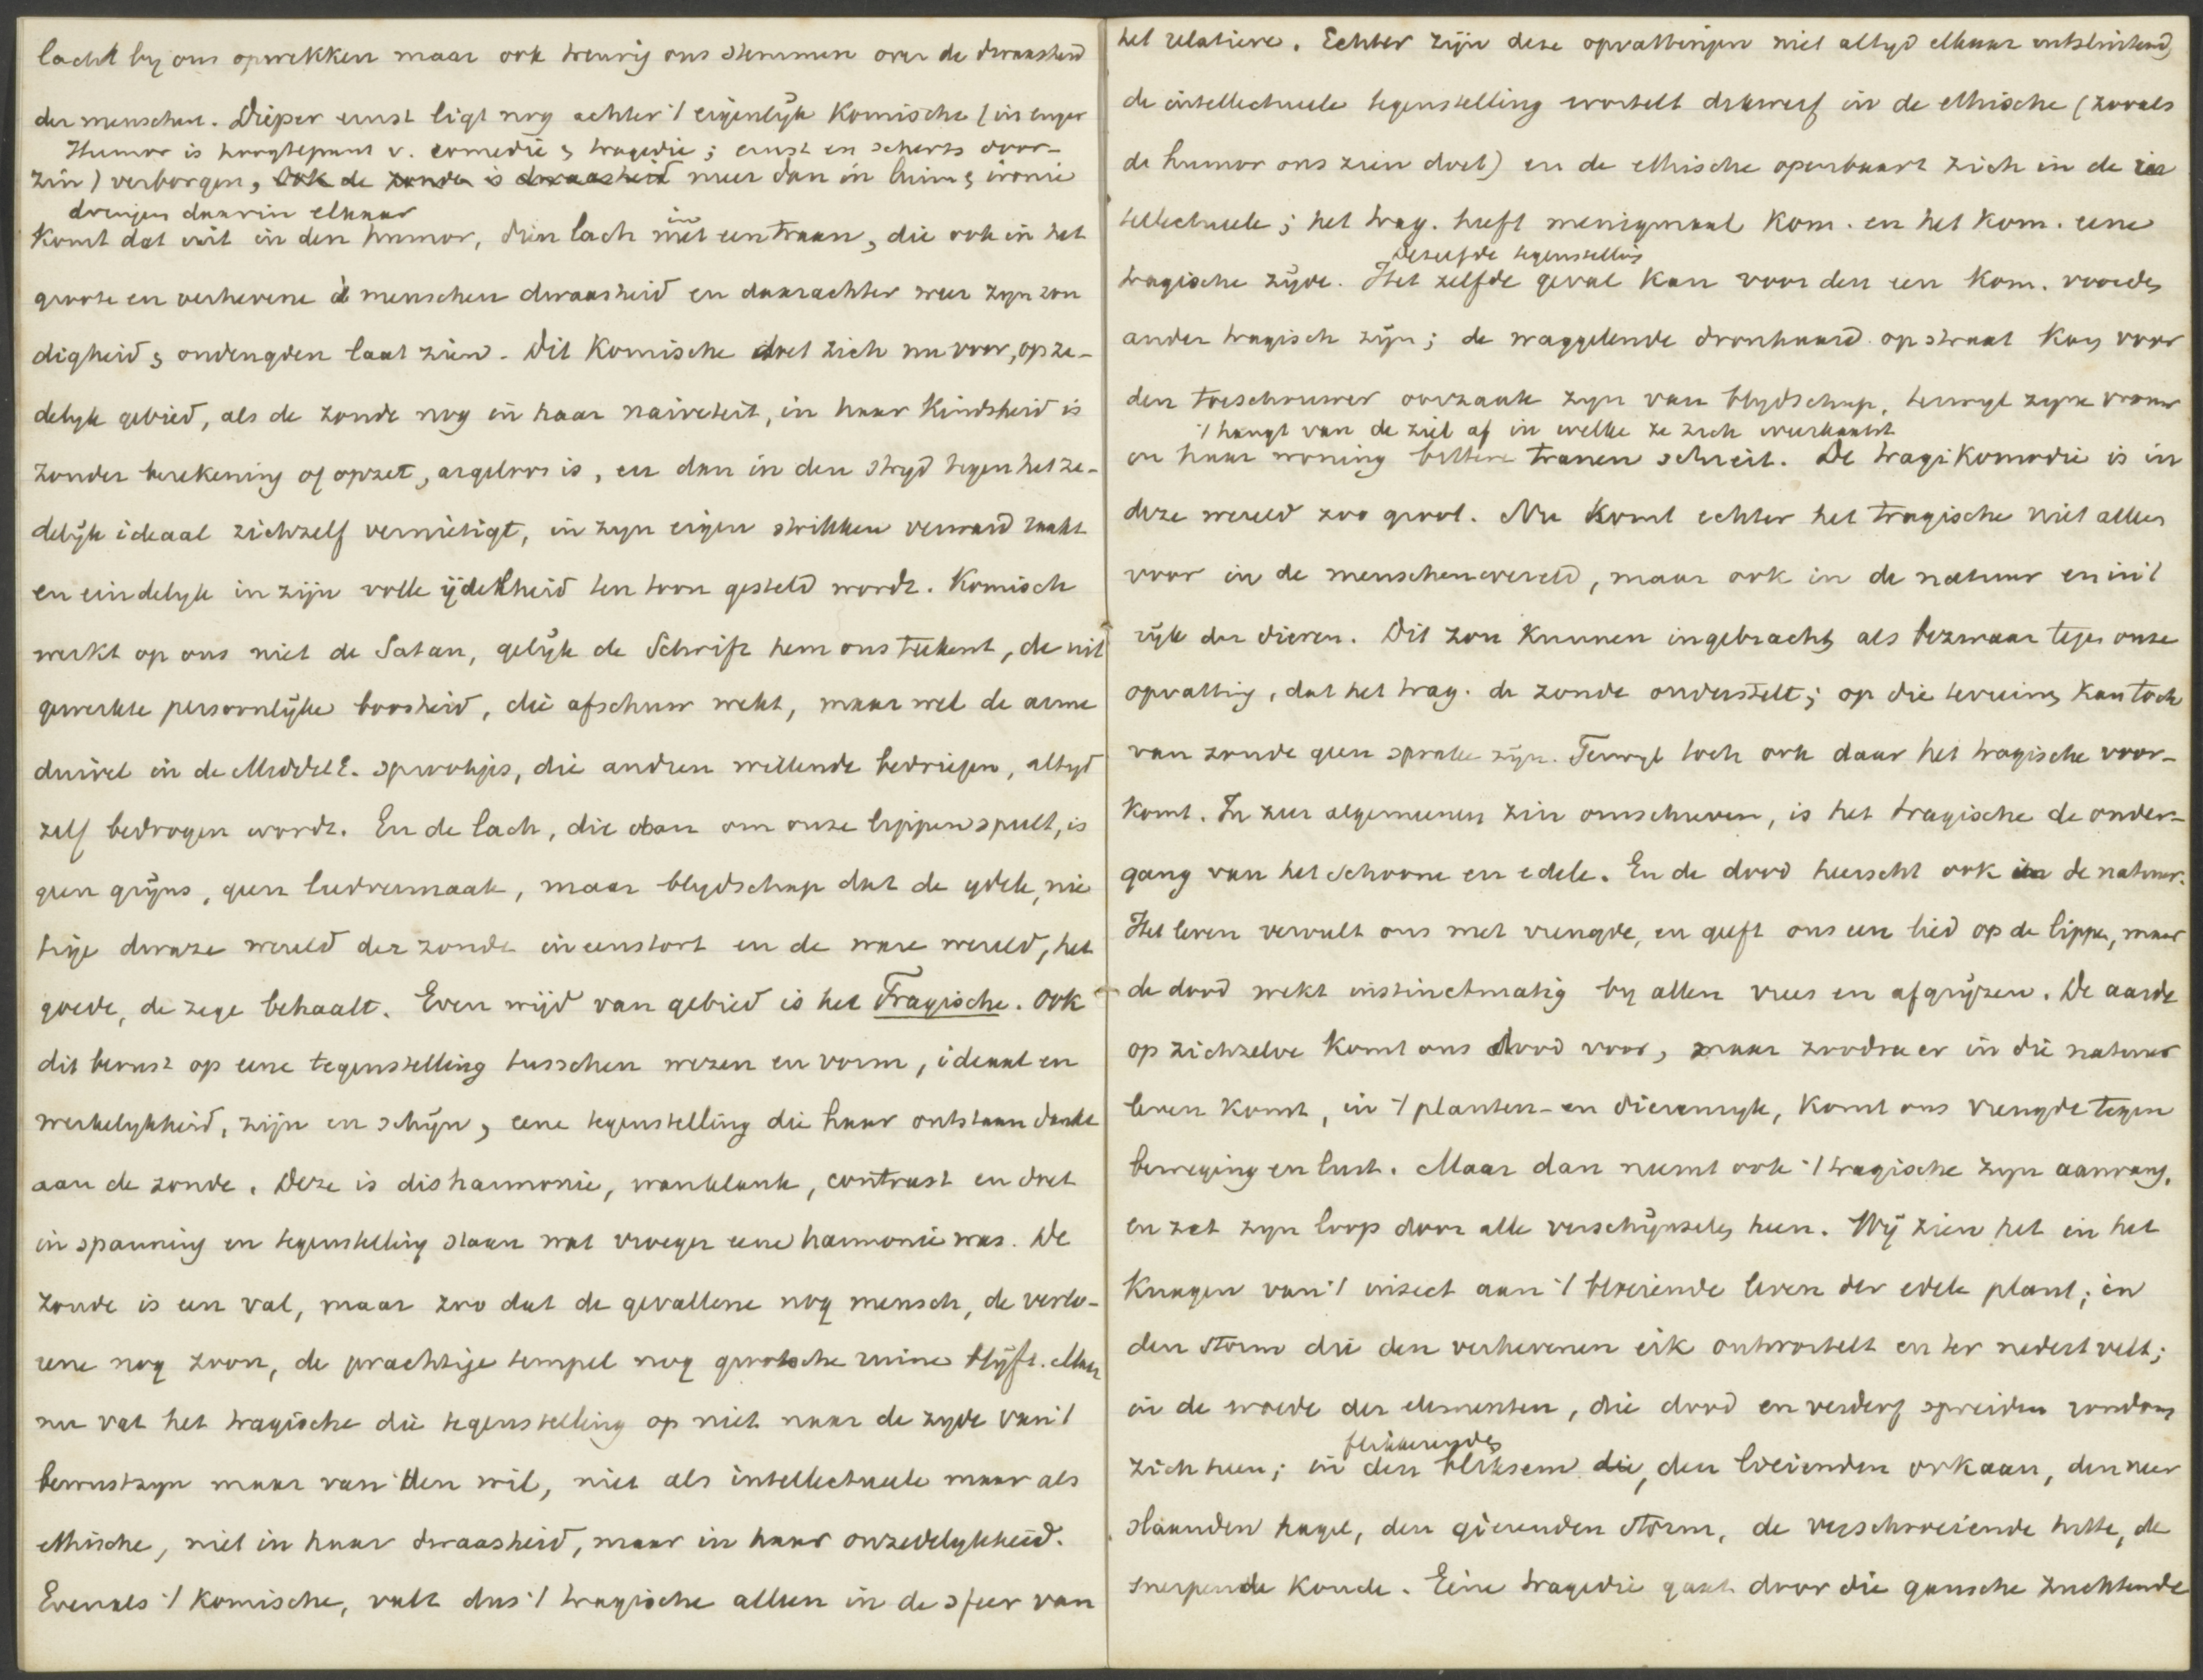 lacht by ons opwekken maar ook treurig ons stemmen over de dwaasheid
der menschen. Dieper ernst ligt nog achter 't eigenlijk Komische (in enger
Humor is hoogtepunt v. comedie & tragedie; ernst en scherts door-
zin) verborgen, ook de zonde is dwaasheid meer dan in luim & ironie
dringen daarin elkaar
Komt dat uit in den humor, dien lach met een traan, die ook in het
in
groote en verhevene der menschen dwaasheid en daarachter weer zyn zon
digheid & ondeugden laat zien. Dit Komische doet zich nu voor, op ze-
delyk gebied, als de zonde nog in haar naiveteit, in haar Kindsheid is
zonder berekening of opzet, argeloos is, en dan in den stryd tegen het ze-
delijk ideaal zichzelf vernietigt, in zyn eigen strikken verward raakt
en eindelyk in zijn volle ijdelheid ten toon gesteld wordt. Komisch
werkt op ons niet de Satan, gelijk de Schrift hem ons teekent, de uit
gewerkte persoonlijke boosheid, die afschuw wekt, maar wel de arme
duivel in de MiddelE. sprookjes, die andren willende bedriegen, altyd
zelf bedrogen wordt. En de lach, die dan om onze lippen speelt, is
geen grijns, geen leedvermaak, maar blydschap dat de ydele, nie
tige dwaze wereld der zonde ineenstort en de ware wereld, het
goede, de zege behaalt. Even wijd van gebied is het Tragische. Ook
dit berust op eene tegenstelling tusschen wezen en vorm, ideaal en
werkelykheid, zijn en schijn, eene tegenstelling die haar ontstaan dankt
aan de zonde. Deze is disharmonie, wanklank, contrast en doet
in spanning en tegenstelling staan wat vroeger eene harmonie was. De
zonde is een val, maar zoo dat de gevallene nog mensch, de verlo-
rene nog zoon, de prachtige tempel nog grootsche ruine blijft. Maar
nu vat het tragische die tegenstelling op niet naar de zyde van 't
bewustzyn maar van den wil, niet als intellectueele maar als
ethische, niet in haar dwaasheid, maar in haar onzedelykheid.
Evenals 't Komische, valt dus 't tragische alleen in de sfeer van
het relatieve. Echter zijn deze opvattingen niet altyd elkaar uitsluitend,
de intellectueele tegenstelling wortelt dikwerf in de ethische (zooals
de humor ons zien doet) en de ethische openbaart zich in de in
tellectueele; het trag. heeft menigmaal Kom. en het Kom. eene
dezelfde tegenstelling
tragische zijde. Het zelfde geval kan voor den een Kom. voor de
ander tragisch zijn; de waggelende dronkaard op straat kan voor
den toeschouwer oorzaak zyn van blydschap, terwyl zyne vrouw
't hangt van de ziel af in welke ze zich weerkaatst
in haar woning bittere tranen schreit. De tragiKomedie is in
deze wereld zoo groot. Nu komt echter het tragische niet alleen
voor in de menschenwereld, maar ook in de natuur en in 't
rijk der dieren. Dit zou kunnen ingebracht als bezwaar tegen onze
opvatting, dat het trag. de zonde onderstelt; op die terreinen kan toch
van zonde geen sprake zijn. Terwyl toch ook daar het tragische voor-
komt. In zeer algemeenen zin omschreven, is het tragische de onder-
gang van het schoone en edele. En de dood heerscht ook in de natuur.
Het leven vervult ons met vreugde, en geeft ons een lied op de lippen, maar
de dood wekt instinctmatig by allen vrees en afgrijzen. De aarde
op zichzelve komt ons dood voor, maar zoodra er in die natuur
leven komt, in 't planten- en dierenryk, komt ons vreugde tegen
beweging en lust. Maar dan neemt ook 't tragische zyn aanvang,
en zet zyn loop door alle verschijnselen heen. Wij zien het in het
Knagen van 't insect aan 't bloeiende leven der edele plant; in
den storm die den verhevenen eik ontwortelt en ter nedert velt;
in de woede der elementen, die dood en verderf spreiden rondom
flikkerenden
zich heen; in den bliksem die, den loeienden orkaan, den neer
slaanden hagel, den gierenden storm, de verschroeiende hitte, de
snerpende Koude. Eene tragedie gaat door die gansche zuchtende